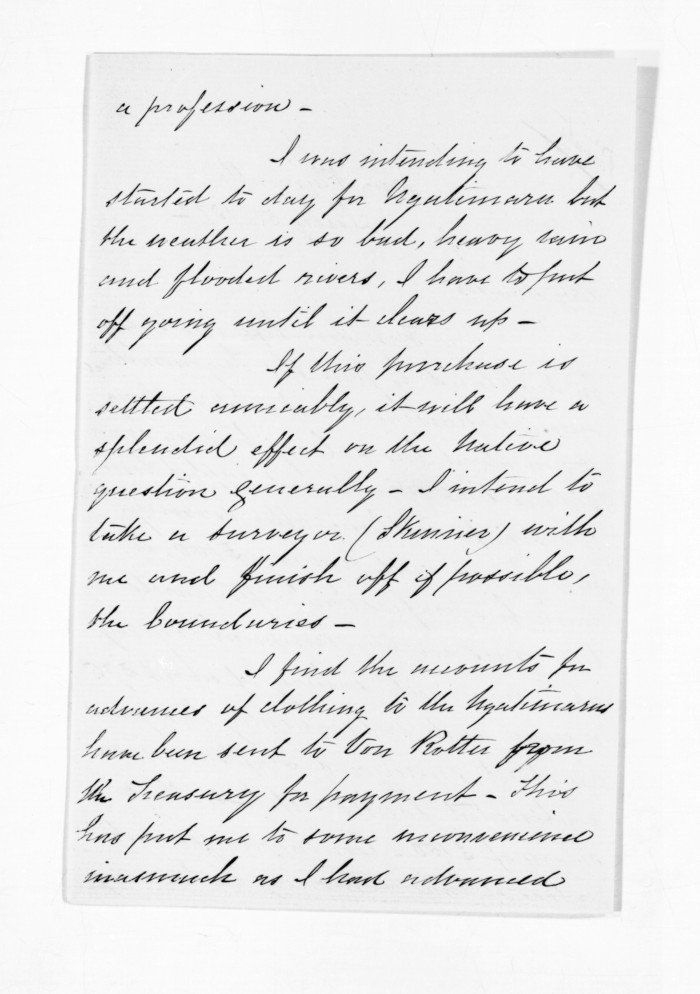 a profession -
I was intending to have
started to day for Ngatimaru but
the weather is so bad, heavy rain
and flooded rivers, I have to put
off going until it clears up -
If this purchase is
settled amicably, it will have a
splendid effect on the Native
question generally - I intend to
take a surveyor (Skinner) with
me and finish off if possible,
the boundaries -
I find the accounts for
advances of clothing to the Ngatimarus
have been sent to Von Rotter from
the Treasury for payment - This
has put me to some inconvenience
inasmuch as I had advanced